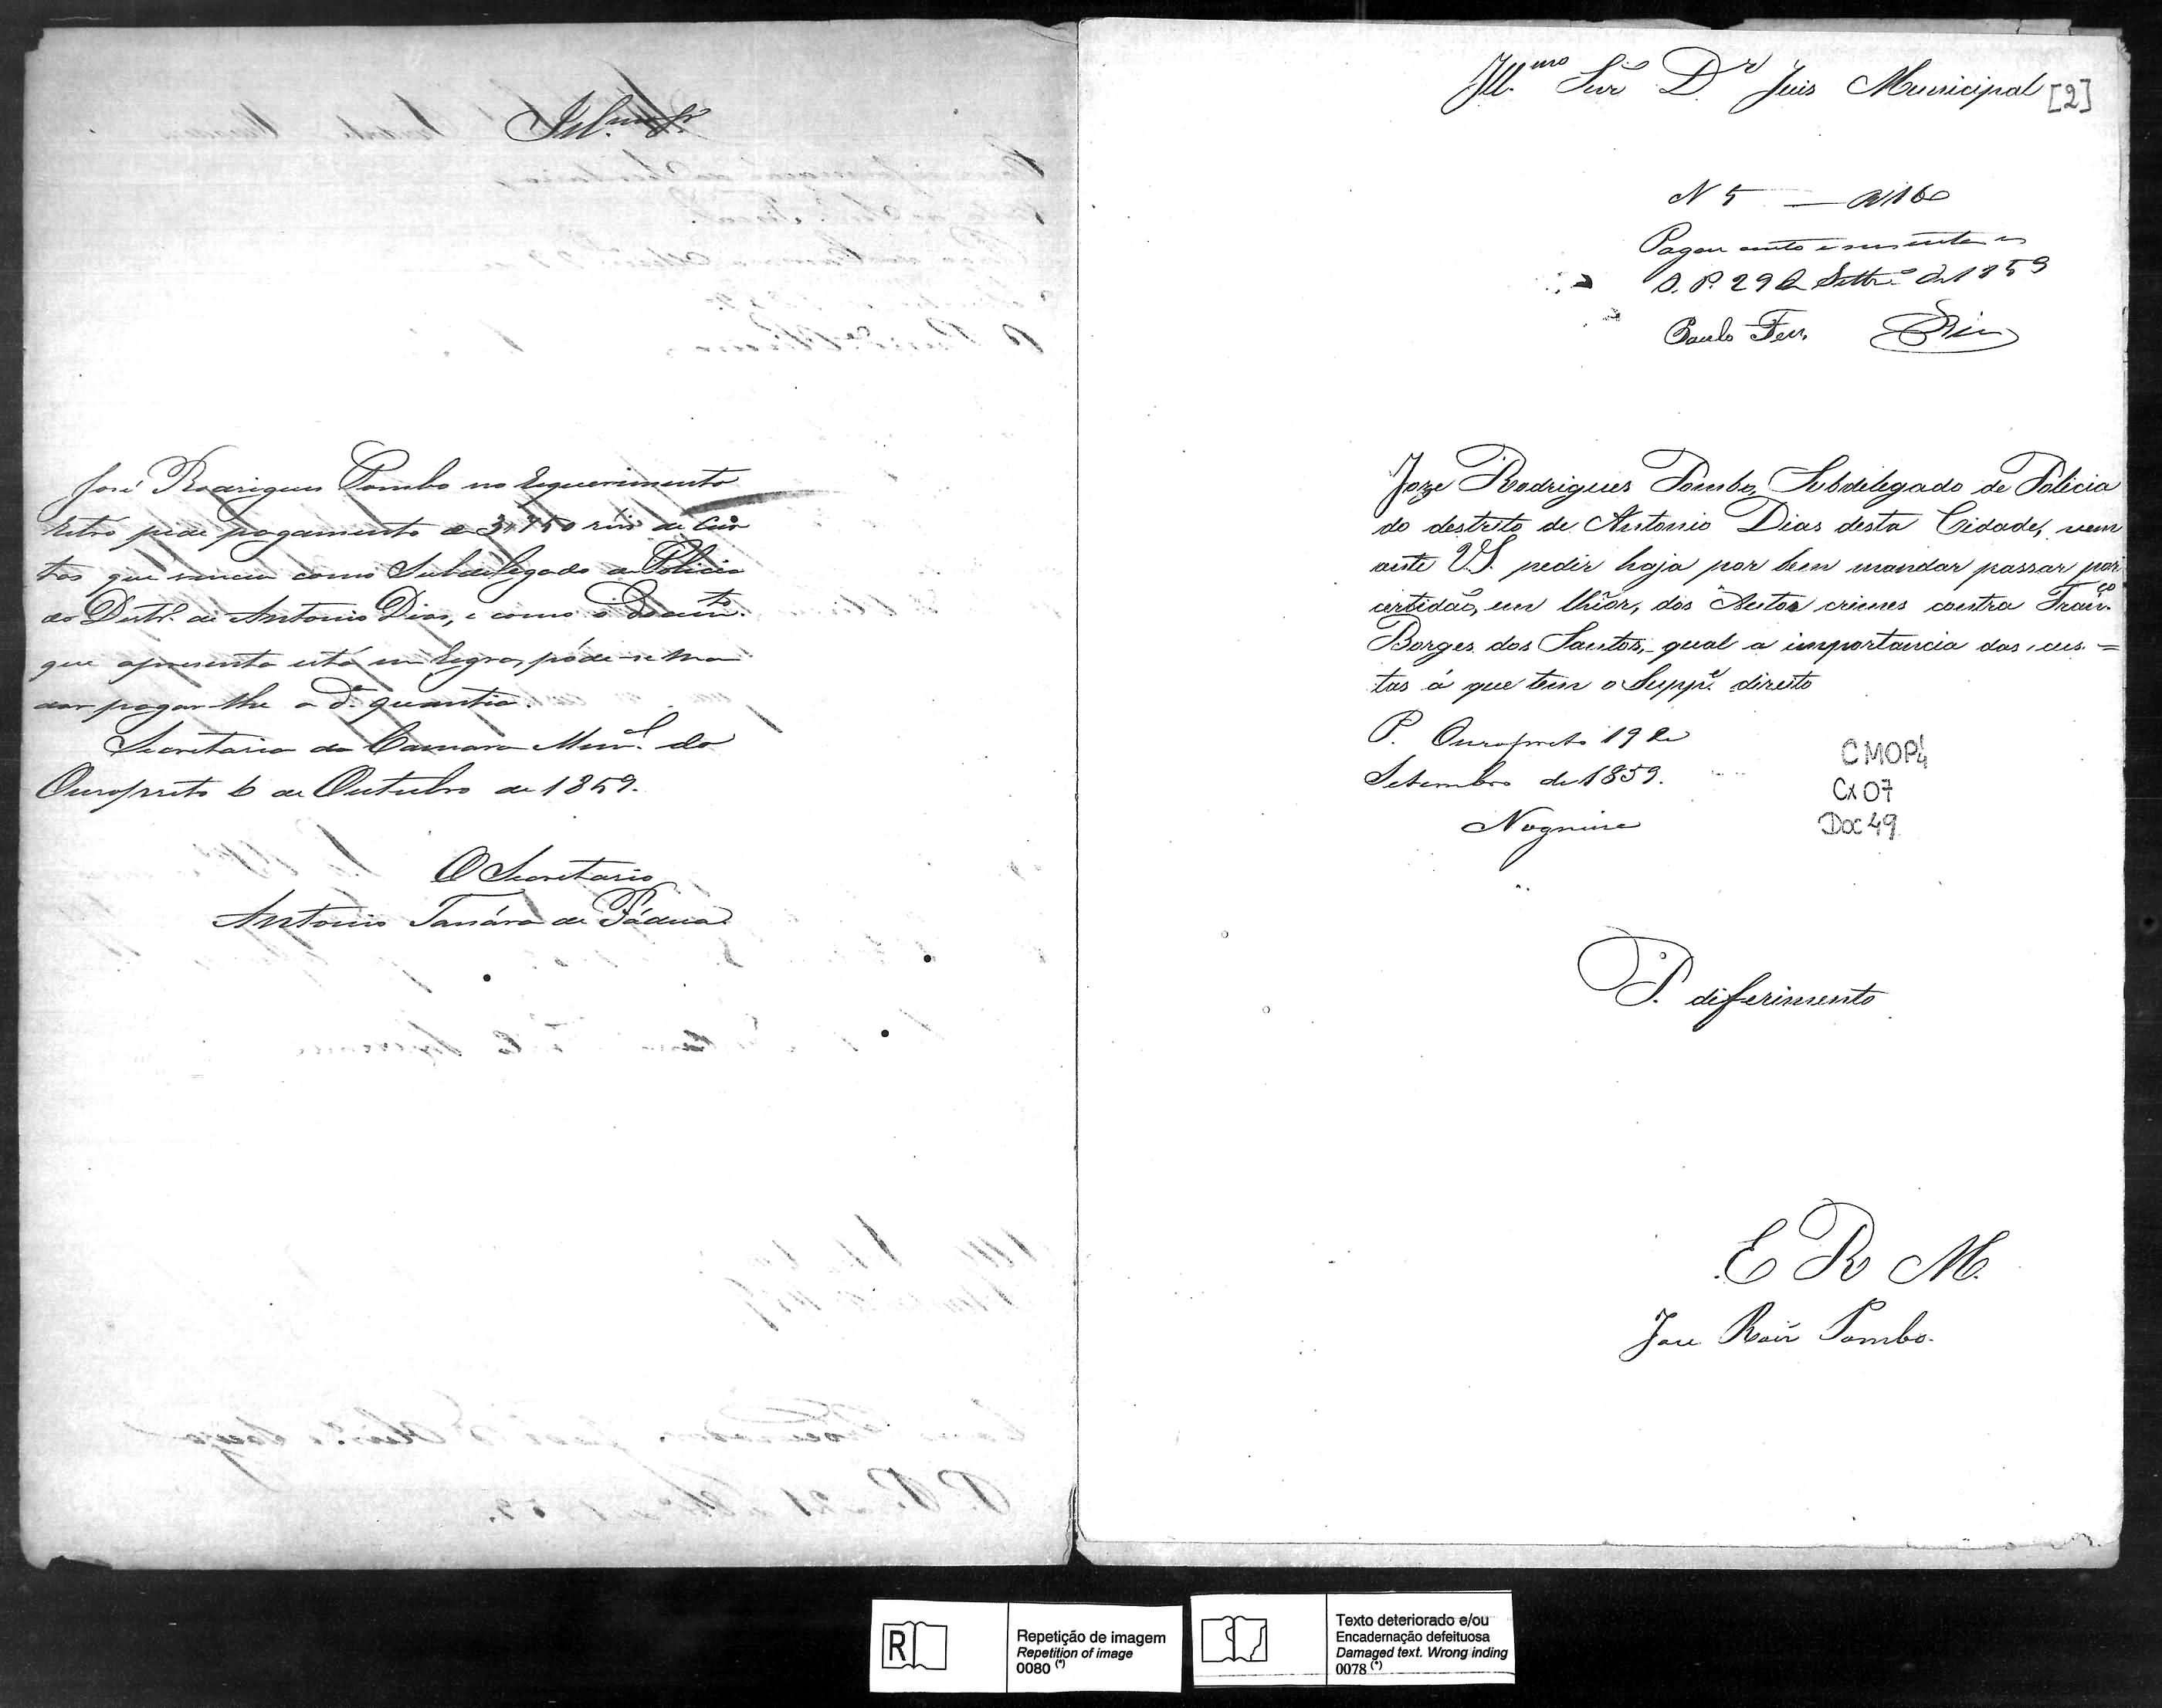 Ill.mos Sr.
José Rodrigues Pombo no requerimento
retro pede pagamento de 3$750 réis de cus
tas que venceu como Subdelegado de Policia
do Distr.o de Antonio Dias, e como o Docum.to
que apresenta está em regra, póde-se man
dar pagar-lhe a d.a quantia.
Secretaria da Camara Mun.l do
Ouropreto 6 de Outubro de 1859.
O Secretario
Antonio de Pádua
Ill.mo Snr D.r Juis Municipal [2]
N 5 — 160
Pagou cento e sessenta rs
O. P. 29 de Settr.o de 1859
Paulo Fer.
Joze Rodrigues Pombo, Subdelegado de Policia
do destrito de Antonio Dias desta Cidade, vem
ante V.S. pedir haja por bem mandar passar por
certidão, em lhiôr, dos Autos crimes contra Fran.co
Borges dos Santos, qual a importancia das cus=
tas á que tem o Supp.e direito
P. Ouropreto 19 de
Setembro de 1859.
CMOP4
Cx 07
Doc 49
P. diferimento
E R M.
Joze Roiz Pombo.
R
Repetição de imagem
Repetition of image
0080 (*)
Texto deteriorado e/ou
Encadernação defeituosa
Damaged text. Wrong inding
0078 (*)